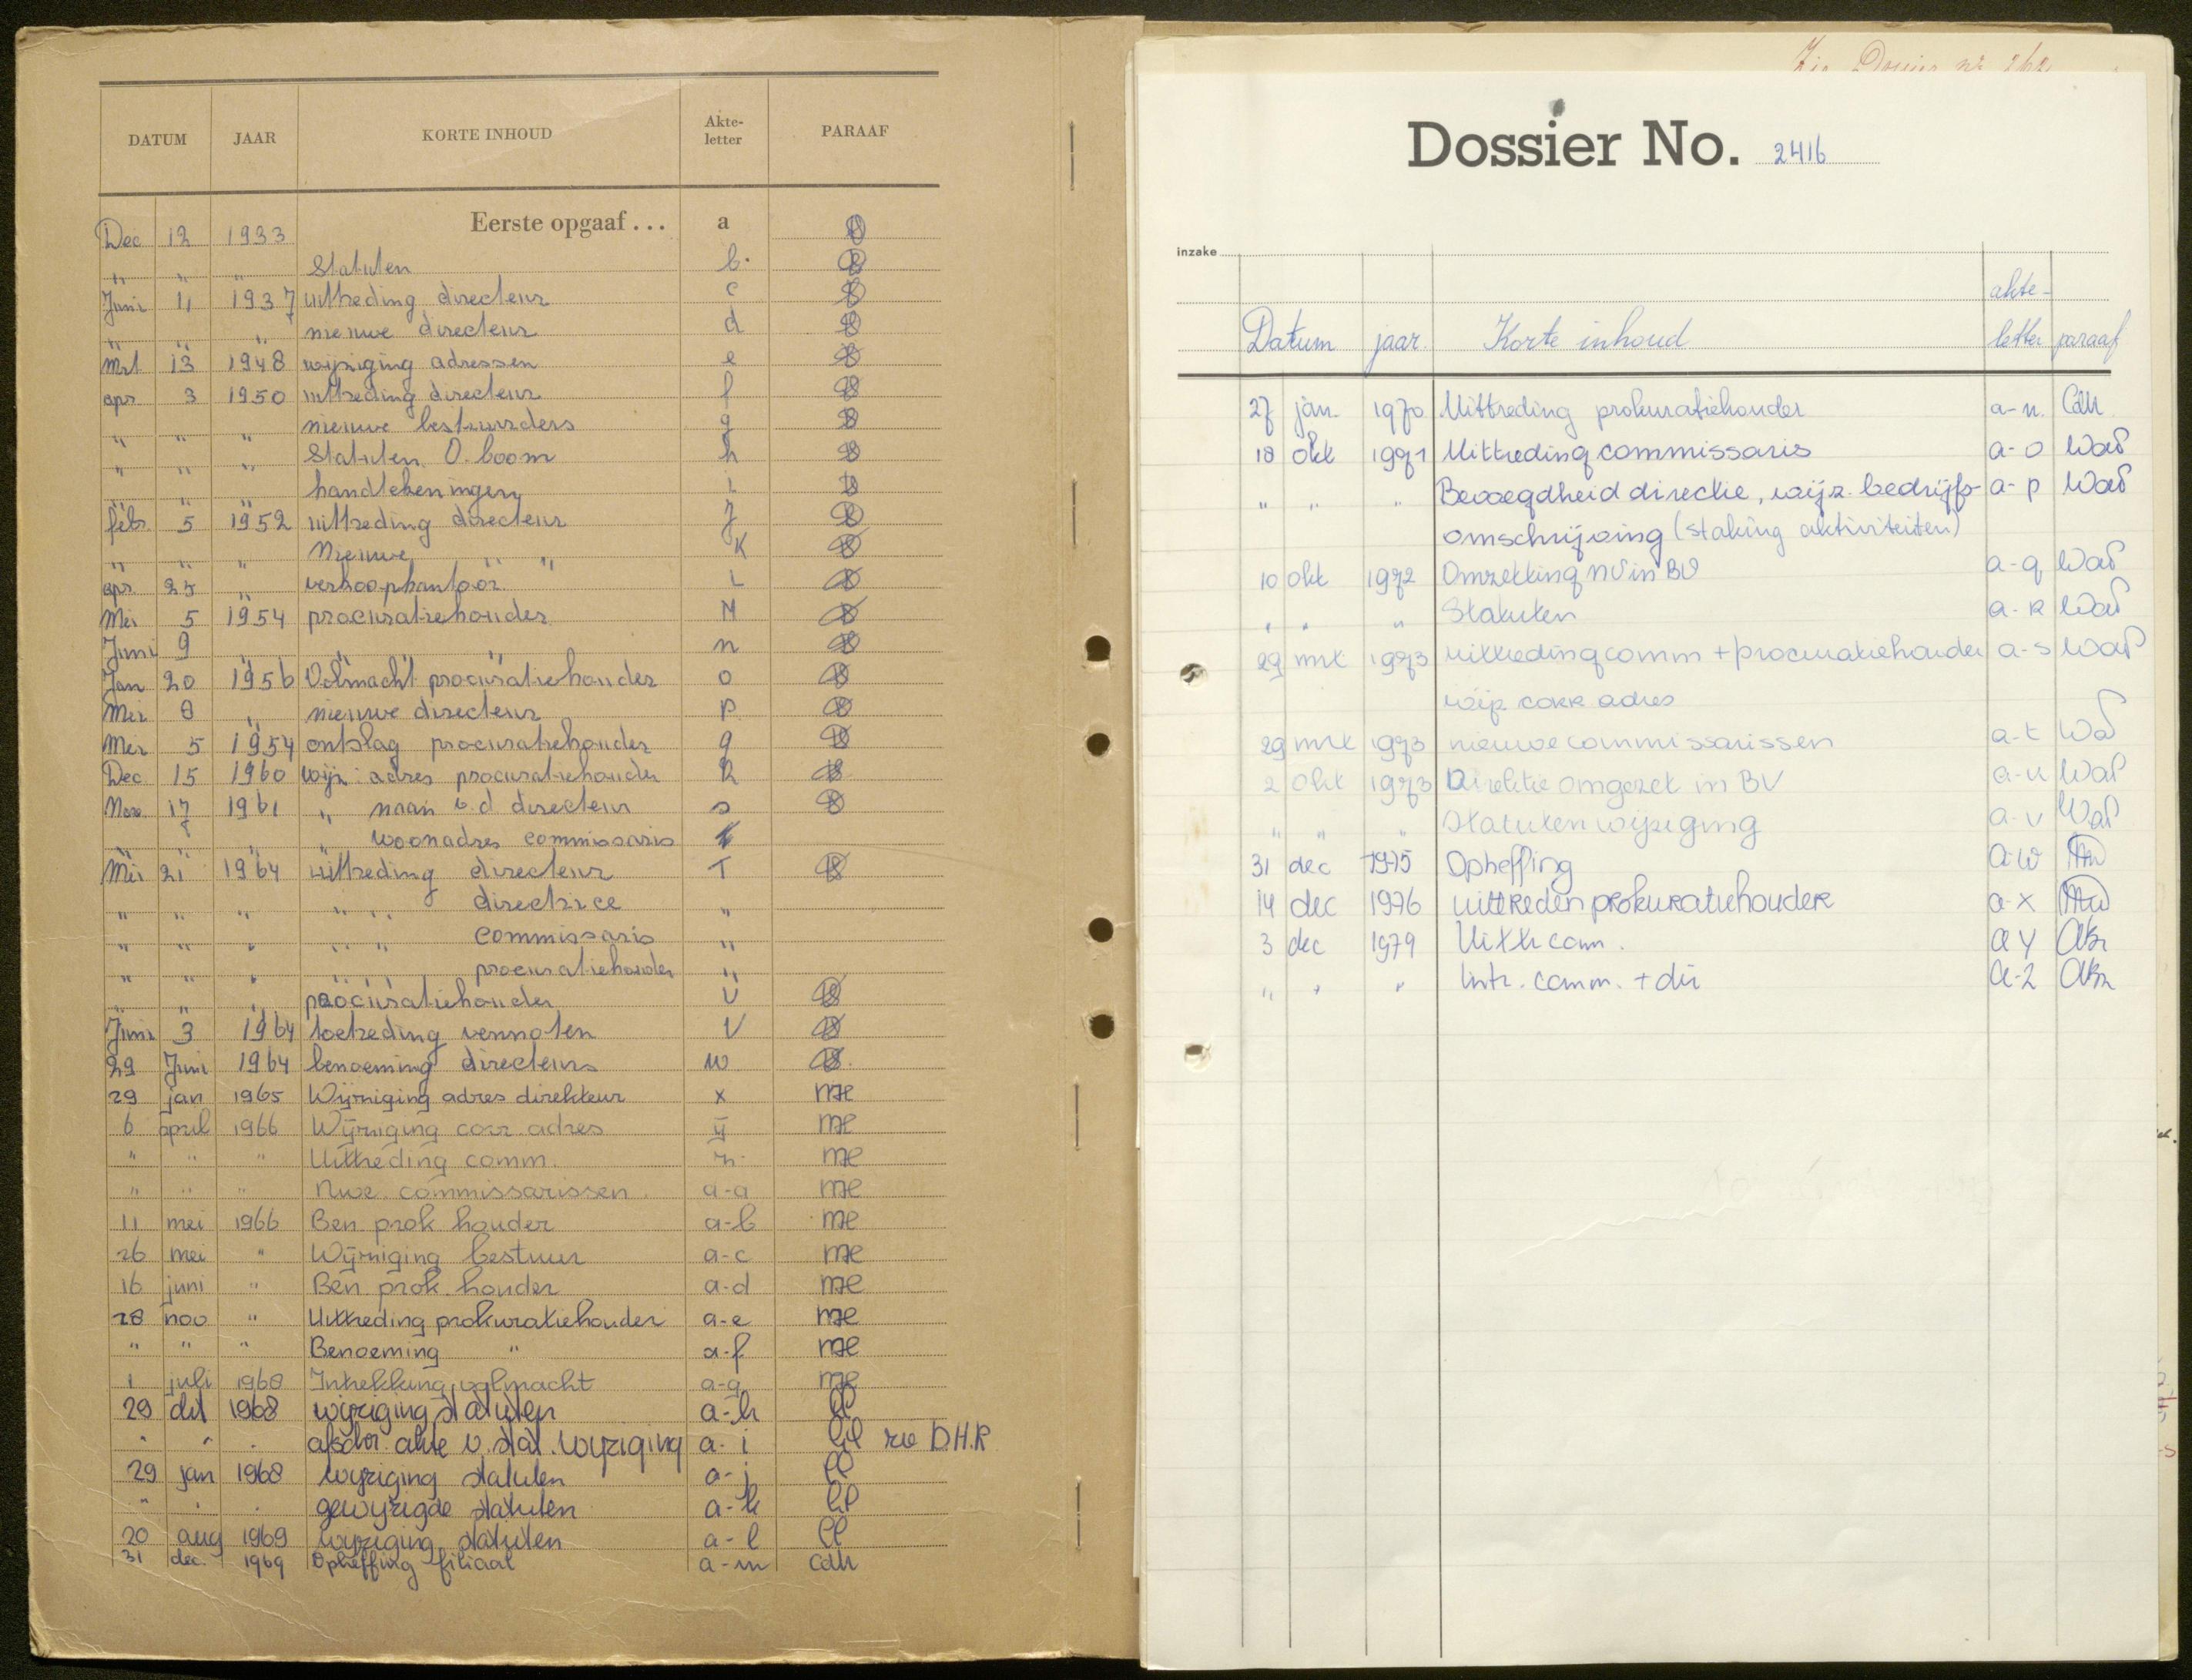 DATUM JAAR KORTE INHOUD Akte-letter PARAAF
Dec 12 1933 Eerste opgaaf... a
" " " Statuten b.
Juni 11 1937 uittreding directeur c
" " " nieuwe directeur d
Mrt 13 1948 wijziging adressen e
apr 3 1950 uittreding directeur f
" " " nieuwe bestuurders g
" " " Statuten O. boom h
" " " handtekeningen i
febr 5 1952 uittreding directeur j
" " " Nieuwe " " K
apr 25 " verkoopkantoor L
Mei 5 1954 procuratiehouder M
Juni 9 " " " n
Jan 20 1956 Volmacht procuratiehouder o
Mei 8 " nieuwe directeur p
Mei 5 1954 ontslag procuratiehouder q
Dec 15 1960 wijz. adres procuratiehouder R
Nov 17 1961 " naam v.d directeur s
" " " " woonadres commissaris
Mei 21 1964 uittreding directeur T
" " " " " directrice "
" " " " " commissaris "
" " " " " procuratiehouder "
" " " procuratiehouder U
Juni 3 1964 toetreding vennoten V
29 Juni 1964 benoeming directeurs w
29 jan 1965 Wijziging adres direkteur x me
6 april 1966 Wijziging corr. adres ij me
" " " Uittreding comm. z. me
" " " Nwe. commissarissen. a-a me
11 mei 1966 Ben. prok. houder a-b me
26 mei " Wijziging bestuur a-c me
16 juni " Ben. prok. houder a-d me
28 nov " Uittreding prokuratiehouder a-e me
" " " Benoeming " a-f me
1 juli 1968 Intrekking volmacht a-g me
29 okt 1968 wijziging statuten a-h
" " " afschr. akte v. stat. wijziging a-i D.H.R
29 jan 1968 wijziging statuten a-j
" " " gewijzigde statuten a-k
20 aug 1969 wijziging statuten a-l
31 dec. 1969 Opheffing filiaal a-m CdH
Zie Dossier nr
Dossier No. 2416
inzake
Datum jaar. Korte inhoud akte-letter paraaf
27 jan. 1970 Uittreding prokuratiehouder a-n. CdH.
18 okt 1971 Uittreding commissaris a-o Waf
" " " Bevoegdheid directie, wijz. bedrijfs- a-p Waf
omschrijving (staking aktiviteiten)
10 okt 1972 Omzetting NV in BV a-q Waf
" " " Statuten a-R Waf
29 mrt 1973 uittreding comm + procuratiehouder a-s Waf
wijz corr adres
29 mrt 1973 nieuwe commissarissen a-t Waf
2 okt 1973 Direktie omgezet in BV a-u Waf
" " " Statuten wijziging a-v Waf
31 dec 1975 Opheffing a-w
14 dec 1976 uittreden prokuratiehouder a-x
3 dec 1979 Uittr comm. a y
" " " Intr. comm. + dir a-z